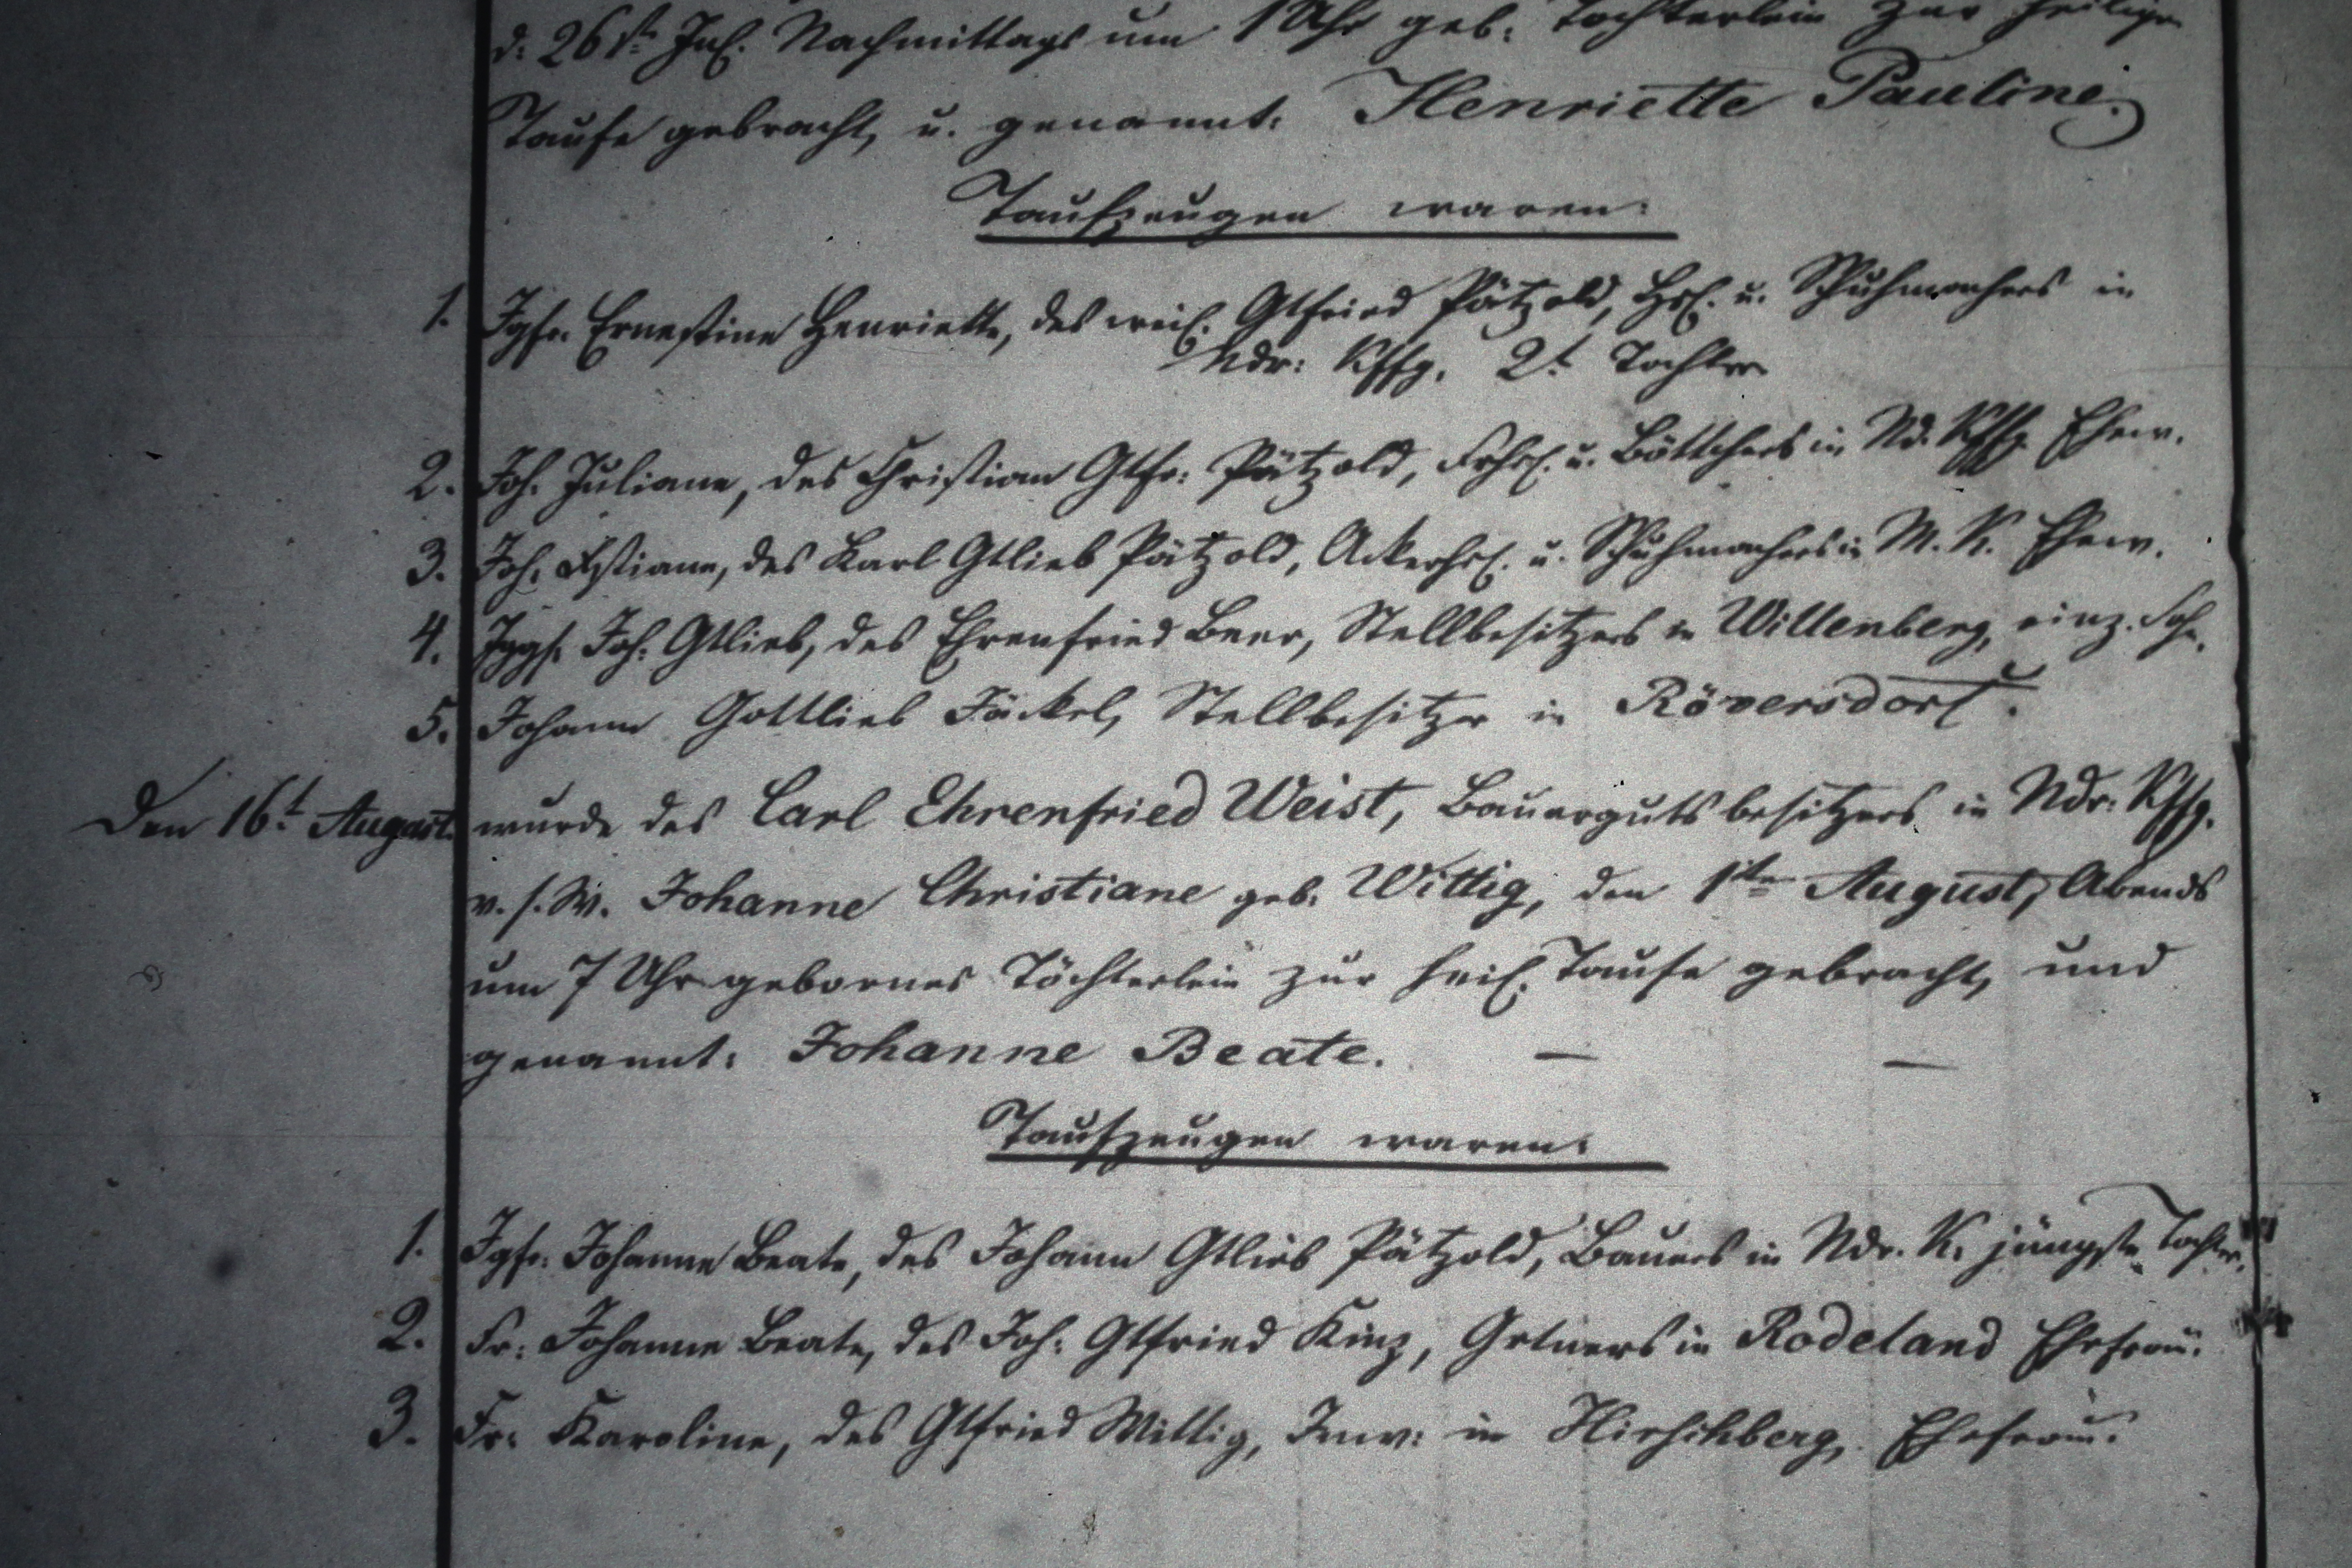 d: 26st. Jul. Nachmittags um 1 Uhr geb. Töchterlein zur heilige
Taufe gebracht, u. genannt: Henriette Pauline.
Taufzeugen waren:
1. Jgfr. Ernestine Henriette, des weil. Gtfried Pätzold, Hsl. u. Schuhmachers in
Ndr: Kffg. 2t. Tochter
2. Joh. Juliane, des Christian Gtfr: Pätzold, Frhsl. u. Böttchers in Nd. Kffg. Ehew.
3. Joh. Xstiane, des Karl Gtlieb Pätzold, Ackerhsl. u. Schuhmachers in M. K. Ehew.
4. Jggs. Joh. Gtlieb, des Ehrenfried Beer, Stellbesitzers in Willenberg, einz. Sohn.
5. Johann Gottlieb Jäckel, Stellbesitzer in Röversdorf.
Den 16t. August. wurde des Carl Ehrenfried Weist, Bauergutsbesitzers in Ndr: Kffg.
v. s. W. Johanne Christiane geb. Wittig, den 1ten August, Abends
um 7 Uhr gebornes Töchterlein zur heil. Taufe gebracht, und
genannt: Johanne Beate. — —
Taufzeugen waren:
1. Jgfr. Johanne Beate, des Johann Gtlieb Pätzold, Bauers in Ndr. K. jüngste Tochter.
2. Fr: Johanne Beate, des Joh: Gtfried Kinz, Grtners in Rodeland Ehefrau.
3. Fr: Karoline, des Gtfried Wittig, Inw: in Hirschberg, Ehefrau.